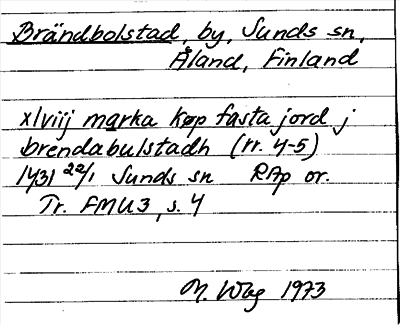 Brändbolstad, by, Sunds sn,
Åland, Finland
xlviij marka køp fasta jord j
brendabulstadh (rr. 4-5)
1431 22/1 Sunds sn RAp or.
Tr. FMU3, s. 4
M. Wag 1973